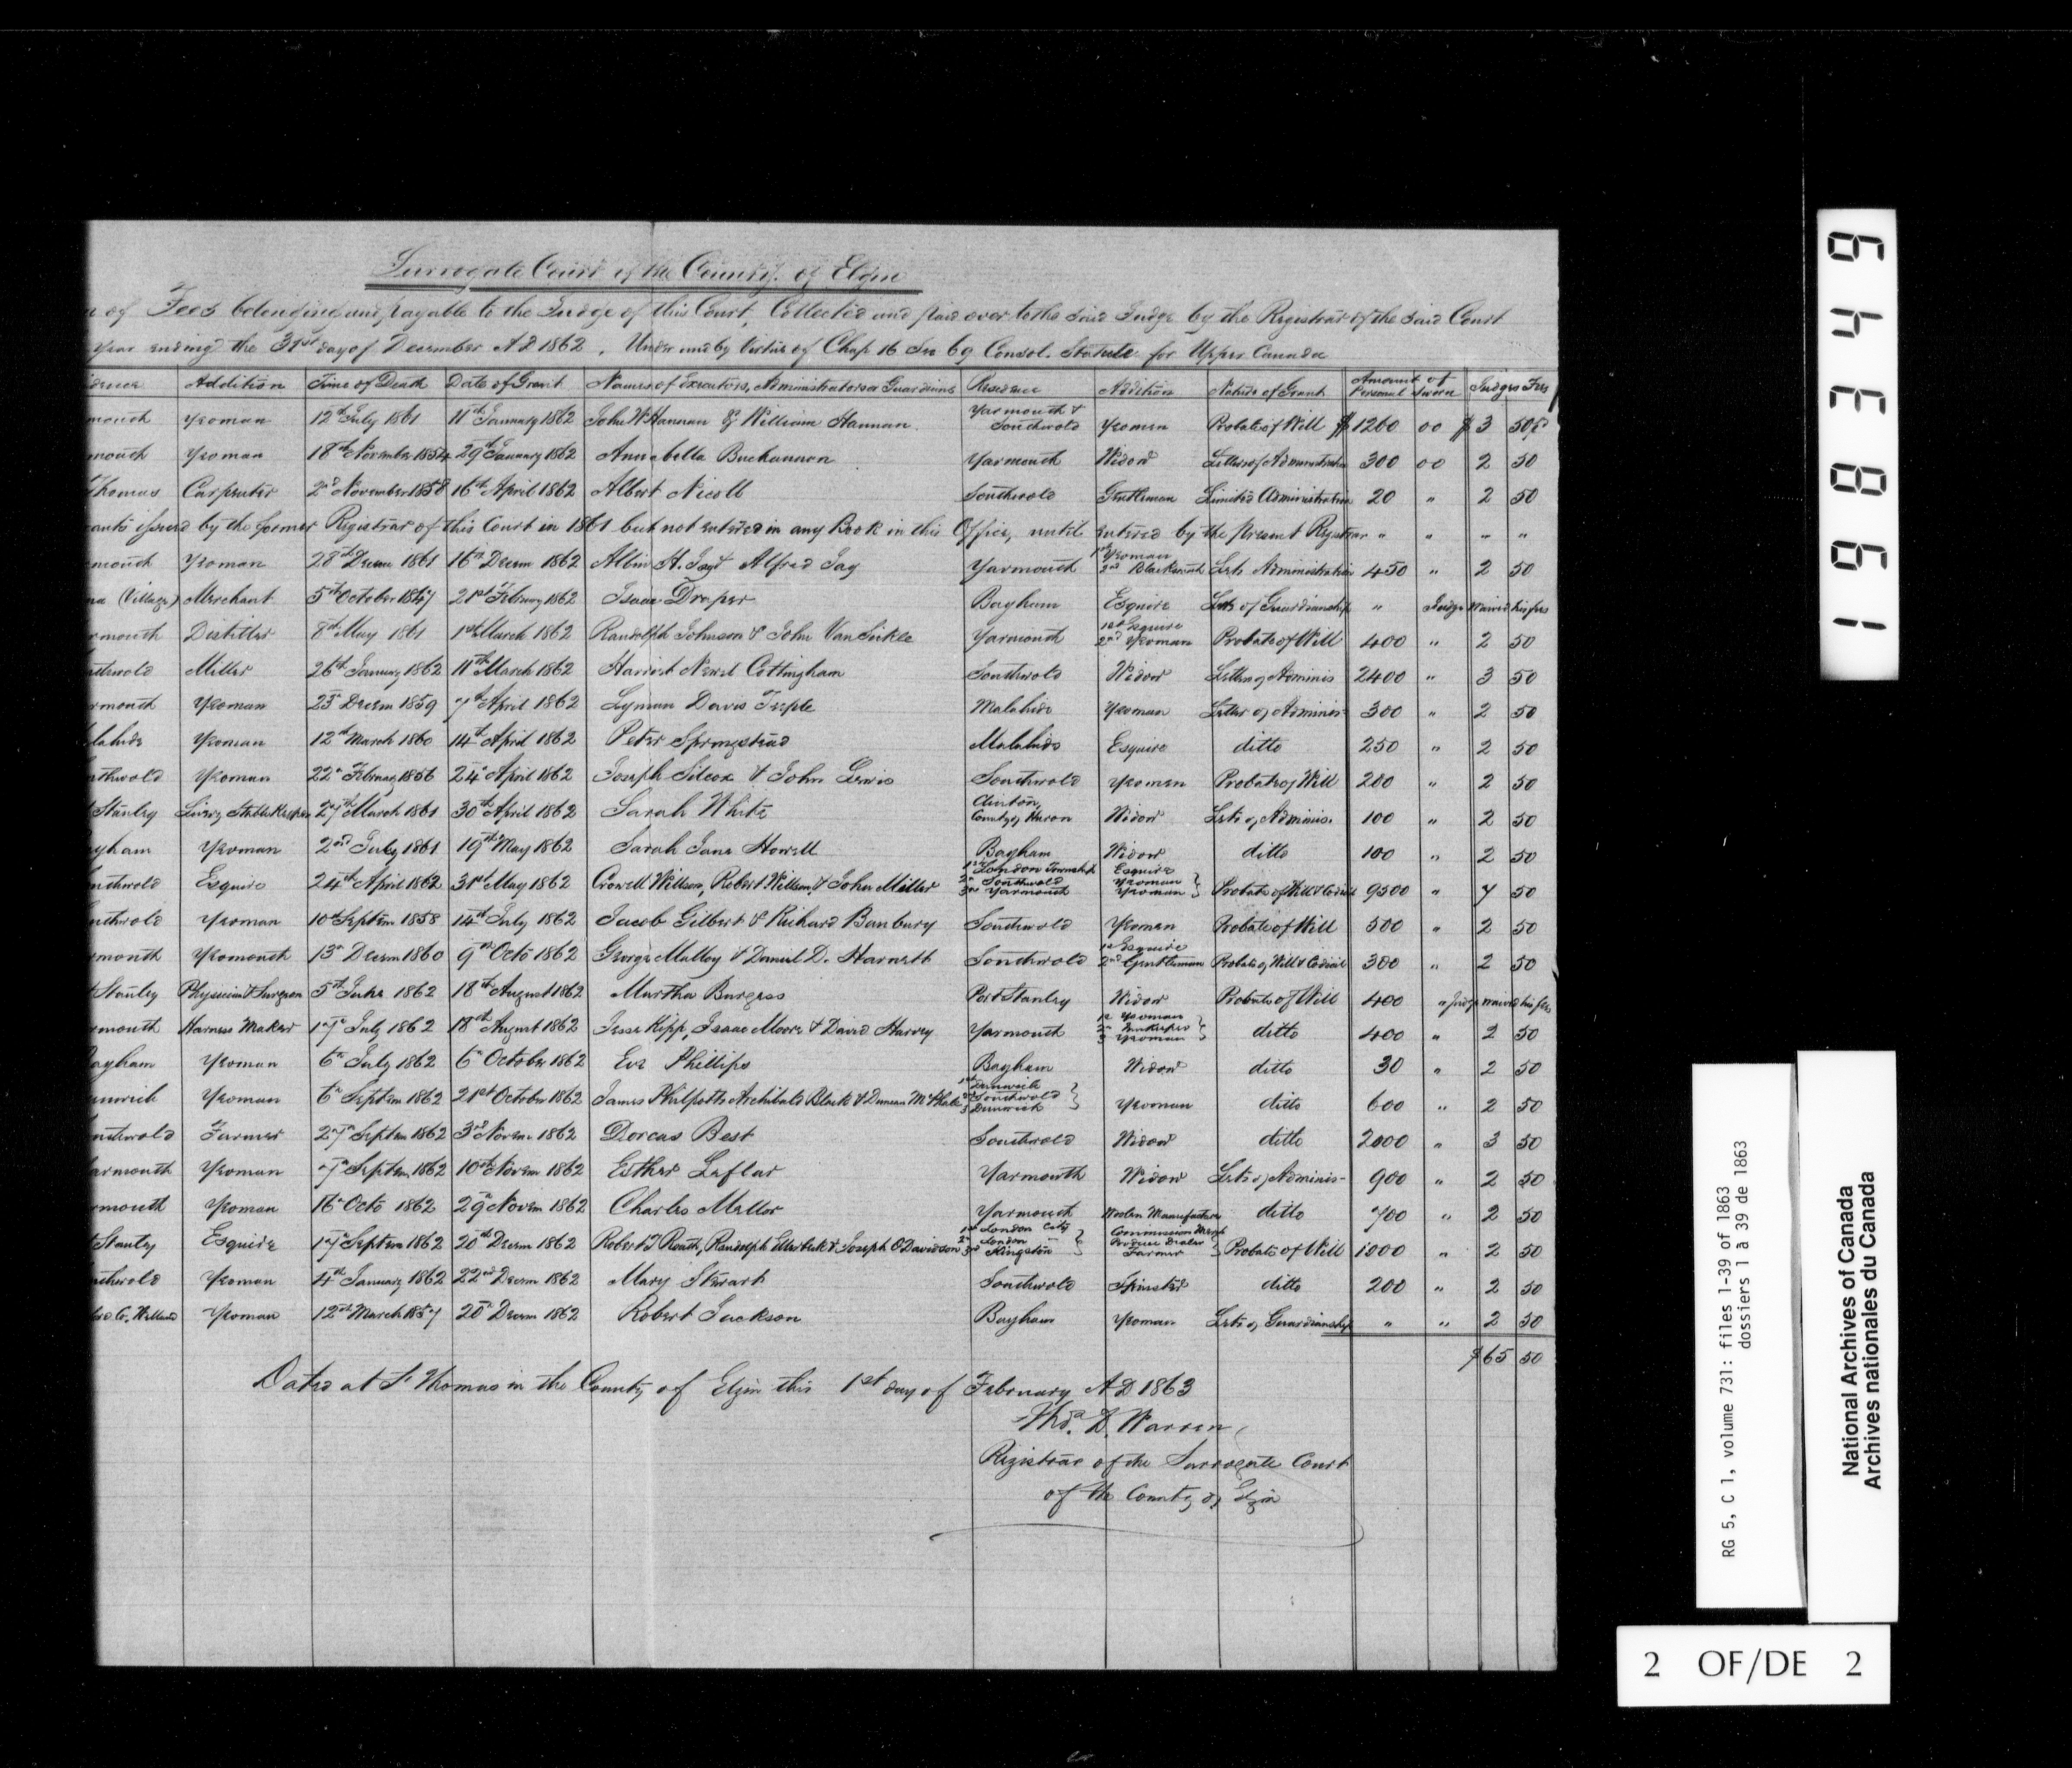 Surrogate Court of the County of Elgin
n of Fees belonging and payable to the Judge of this Court, Collected and paid over to the said Judge by the Registrar of the said Court
year ending the 31st day of December A.D 1862. Under and by Virtue of Chap 16 Sec 69 Consol. Statute for Upper Canada
idence Addition Time of Death Date of Grant Names of Executors, Administrators or Guardians Residence Addition Nature of Grant Amount of Personal Sworn Judges Fees
mouth Yeoman 12th July 1861 11th January 1862 John W Hannan & William Hannan Yarmouth & Southwold Yeomen Probate of Will $1260 00 $3 50
mouth Yeoman 18th November 1854 29th January 1862 Annabella Buchannan Yarmouth Widow Letters of Administration 300 00 2 50
Thomas Carpenter 2nd November 1858 16th April 1862 Albert Nicoll Southwold Gentleman Limited Administration 20 " 2 50
rants issued by the former Registrar of this Court in 1861 but not entered in any Book in this Office, until entered by the present Registrar " " " "
mouth Yeoman 28th Decem 1861 16th Decem 1862 Albin H. Jay & Alfred Jay Yarmouth 1st Yeoman 2nd Blacksmith Lets Administration 450 " 2 50
na (Village) Merchant 5th October 1847 21st Febuary 1862 Isaac Draper Bayham Esquire Lets of Guardianship " Judge waived his fees
rmouth Distiller 8th May 1861 1st March 1862 Randolph Johnson & John VanSickle Yarmouth 1st Esquire 2nd Yeoman Probate of Will 400 " 2 50
uthwold Miller 26th January 1862 11th March 1862 Harriet Newel Cottingham Southwold Widow Letters of Adminis 2400 " 3 50
rmouth Yeoman 23 Decem 1859 7th April 1862 Lyman Davis Teeple Malahide Yeoman Letter of Adminis- 300 " 2 50
lahide Yeoman 12th March 1860 14th April 1862 Peter Springstead Malahide Esquire ditto 250 " 2 50
uthwold Yeoman 22n Febuary 1856 24th April 1862 Joseph Silcox & John Lewis Southwold Yeomen Probate of Will 200 " 2 50
t Stanley Livery Stable Keeper 27th March 1861 30th April 1862 Sarah White Clinton, County of Huron Widow Lets of Adminis. 100 " 2 50
yham Yeoman 2nd July 1861 19th May 1862 Sarah Jane Howell Bayham Widow ditto 100 " 2 50
uthwold Esquire 24th April 1862 31st May 1862 Crowell Willson, Robert Willson, & John Miller 1st London Township 2n Southwold 3rd Yarmouth Esquire Yeoman Yeoman Probate of Will & Codicil 9500 " 7 50
uthwold Yeoman 10th Septem 1858 14th July 1862 Jacob Gilbert & Richard Banbury Southwold Yeomen Probate of Will 500 " 2 50
rmouth Yeomouth 13n Decem 1860 9th Octo 1862 George Malloy & Daniel D. Harnett Southwold 1st Esquire 2nd Gentleman Probate of Will & Codicil 300 " 2 50
t Stanley Physician & Surgeon 5th June 1862 18th August 1862 Martha Burgess Port Stanley Widow Probate of Will 400 " Judge waived his fees
rmouth Harness Maker 17th July 1862 18th August 1862 Jesse Kipp, Isaac Moore & David Harvey Yarmouth 1st Yeoman 2n Innkeeper 3 Yeoman ditto 400 " 2 50
Bayham Yeoman 6th July 1862 6th October 1862 Eve Phillips Bayham Widow ditto 30 " 2 50
unwich Yeoman 6th Septem 1862 21st October 1862 James Philpott, Archibald Black & Duncan McPhale 1st Dunwich 2nd Southwold 3 Dunwich Yeoman ditto 600 " 2 50
uthwold Farmer 27th Septem 1862 3rd Novem 1862 Dorcas Best Southwold Widow ditto 2000 " 3 50
armouth Yeoman 7th Septem 1862 10th Novem 1862 Esther Leflar Yarmouth Widow Lets of Adminis- 900 " 2 50
rmouth Yeoman 16th Octo 1862 29th Novem 1862 Charles Mellor Yarmouth Woolen Manufacturer ditto 700 " 2 50
t Stanley Esquire 17th Septem 1862 20th Decem 1862 Robert J Routh, Randolph Ellerbeck & Joseph O Davidson 1st London City 2n London 3rd Kingston Commission Merch Produce Dealer Farmer Probate of Will 1000 " 2 50
uthwold Yeoman 4th January 1862 22nd Decem 1862 Mary Stewart Southwold Spinster ditto 200 " 2 50
Co. Welland Yeoman 12th March 1857 20th Decem 1862 Robert Jackson Bayham Yeoman Lets of Guardianship " " 2 50
$65 50
Dated at St Thomas in the County of Elgin this 1st day of February A D 1863
Thos. D. Warren
Registrar of the Surrogate Court
of the County of Elgin
198349
RG 5, C 1, volume 731: files 1-39 of 1863
dossiers 1 à 39 de 1863
National Archives of Canada
Archives nationales du Canada
2 OF/DE 2